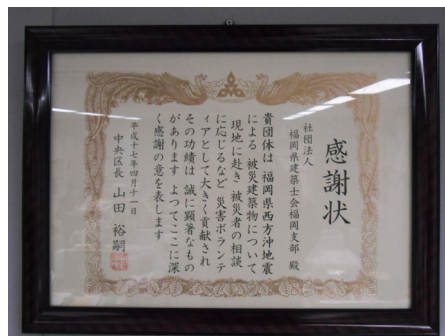 感謝状
社団法人
福岡県建築士会福岡支部 殿
貴団体は 福岡県西方沖地震
による 被災建築物について
現地に赴き 被災者の相談
に応じるなど 災害ボランテ
ィアとして大きく貢献され
その功績は 誠に顕著なもの
があります よつてここに深
く感謝の意を表します
平成十七年四月十一日
中央区長 山田裕嗣